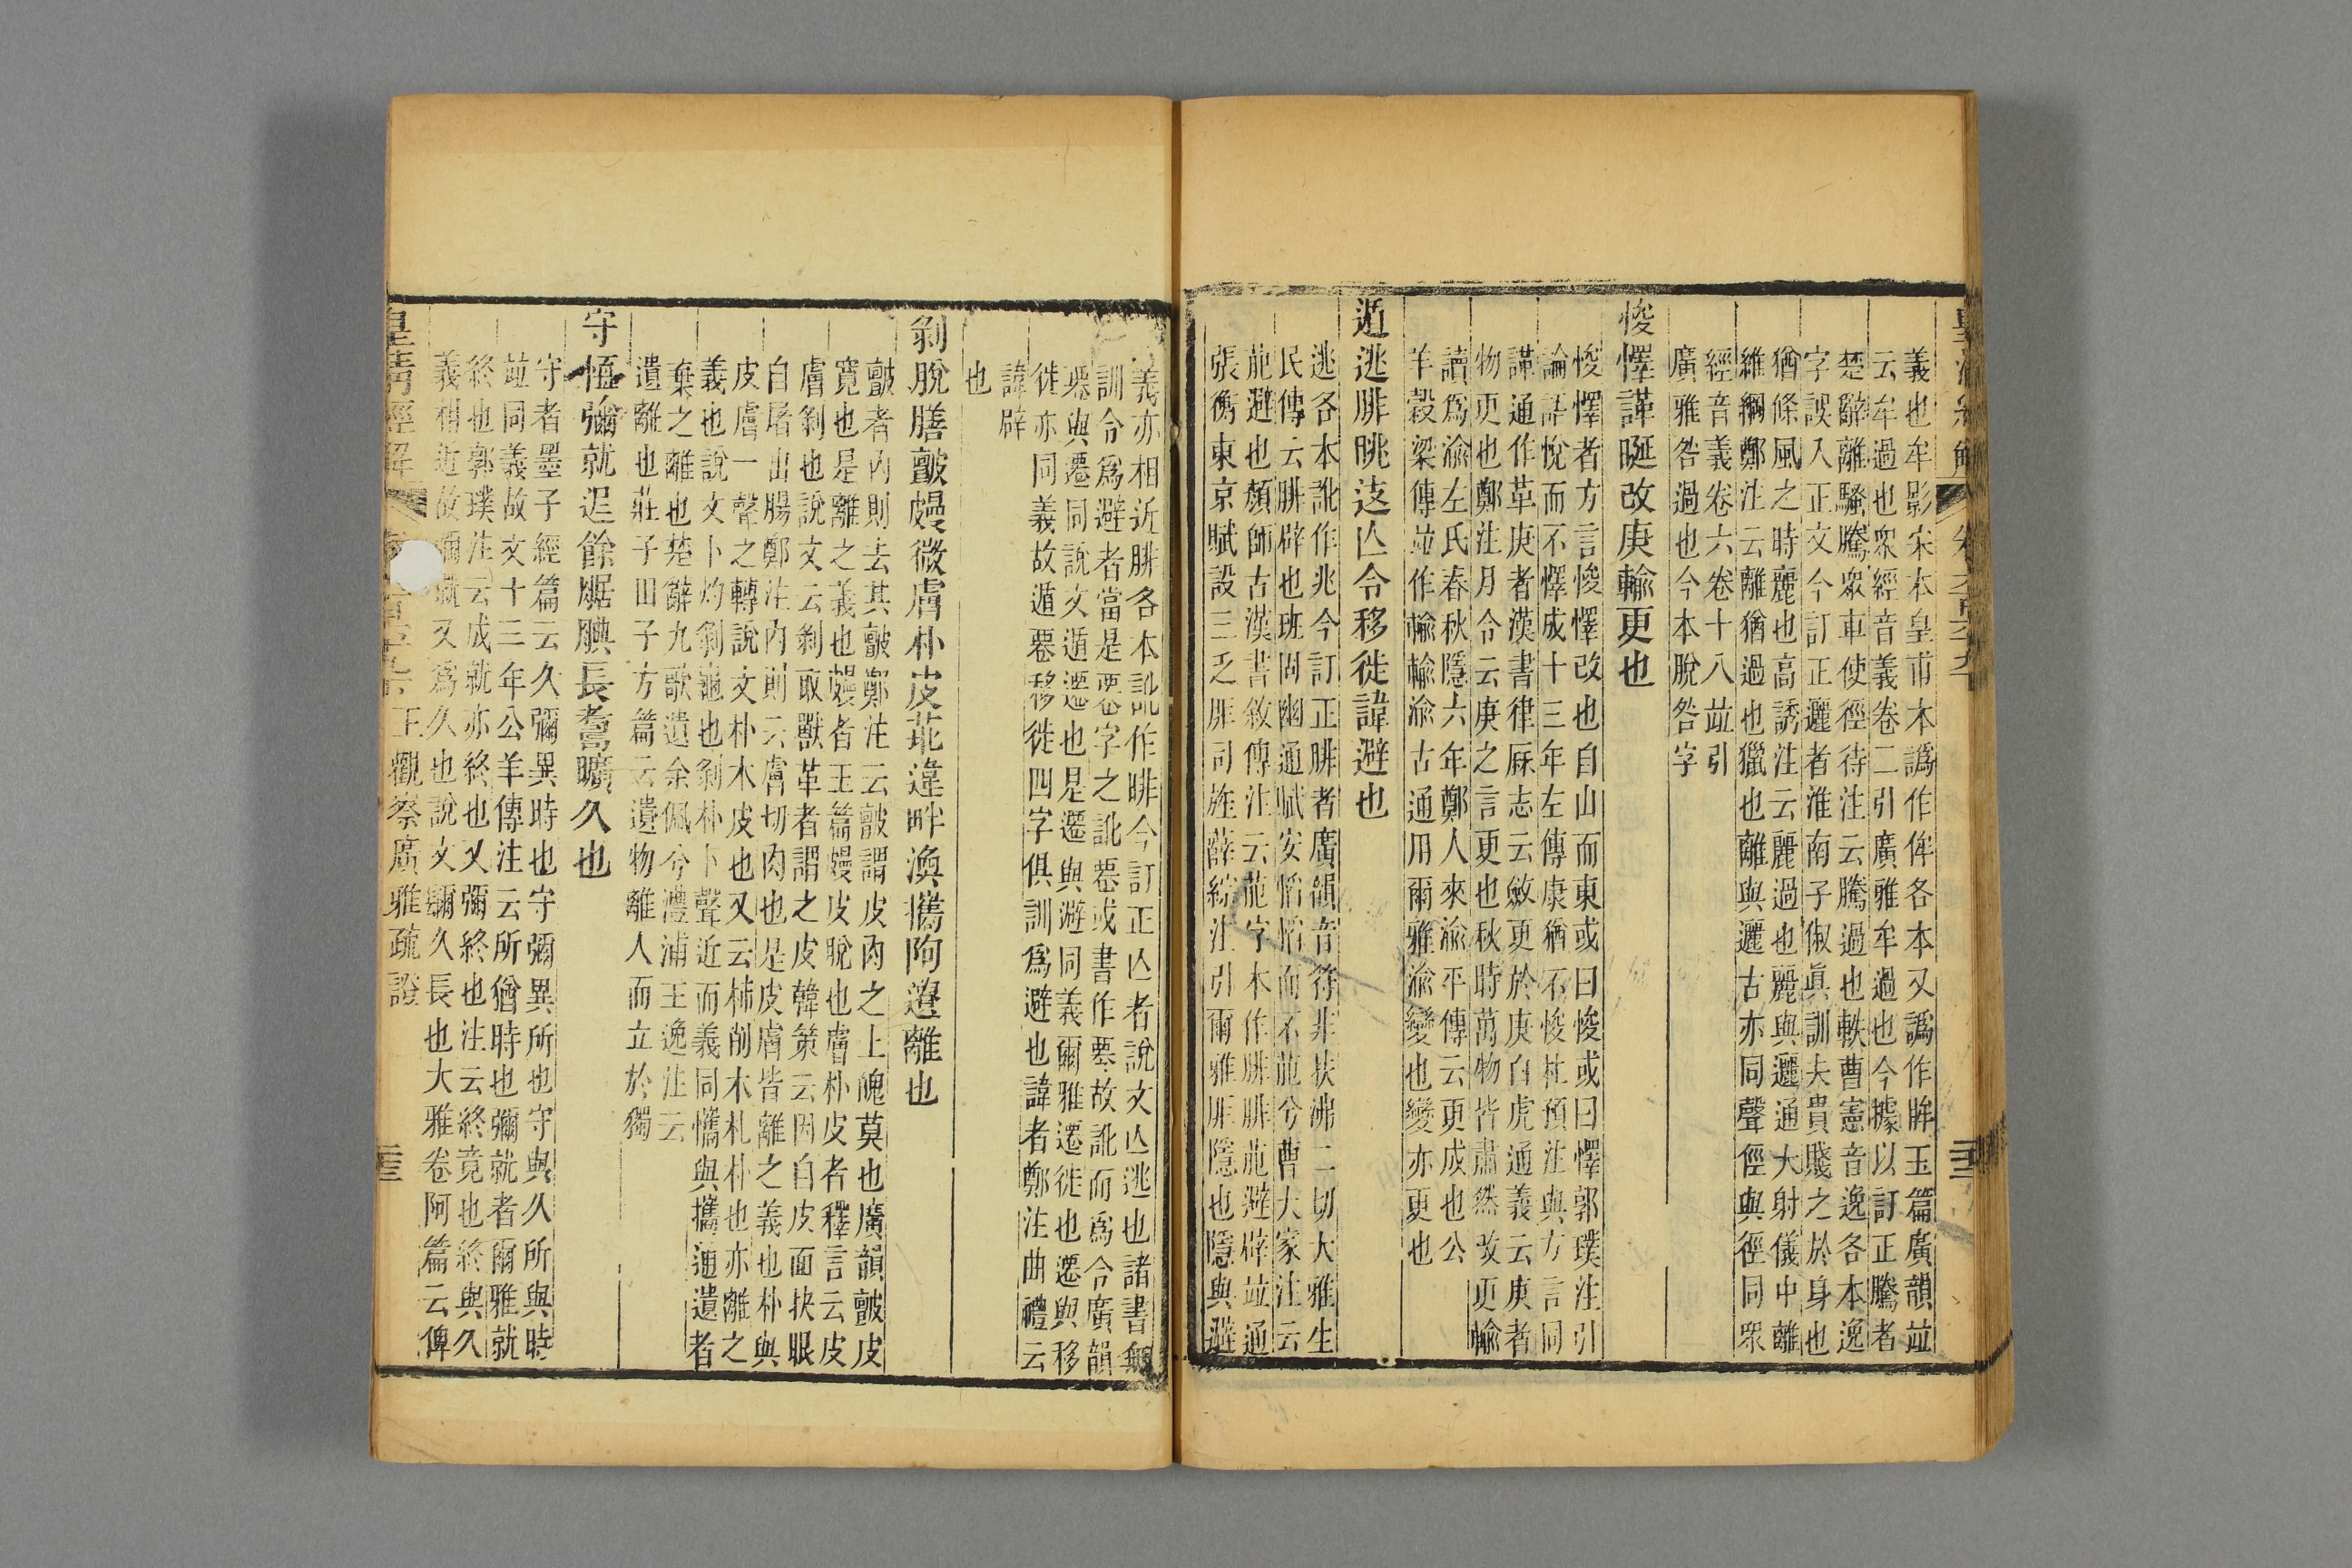 義也牟影宋本皇甫本譌作侔各本又譌作眸玉篇廣韻竝
云牟過也眾經音義卷二引廣雅牟過也今據以訂正騰者
楚辭離騷騰眾車使徑待注云騰過也軼曹憲音逸各本逸
字誤入正文今訂正邐者淮南子俶眞訓夫貴賤之於身也
猶條風之時麗也高誘注云麗過也麗與邐通大射儀中離
維綱鄭注云離猶過也獵也離與邐古亦同聲徑與徑同眾
經音義卷六卷十八竝引
廣雅咎過也今本脫咎字
悛懌譁䀽改庚輸更也
悛懌者方言悛懌改也自山而東或曰悛或曰懌郭璞注引
論語悅而不懌成十三年左傳康猶不悛杜預注與方言同
譁通作革庚者漢書律厤志云斂更於庚白虎通義云庚者
物更也鄭注月令云庚之言更也秋時萬物皆肅然改更輸
讀爲渝左氏春秋隱六年鄭人來渝平傳云更成也公
羊穀梁傳竝作輸輸渝古通用爾雅渝變也變亦更也
遁逃腓眺迻亾令移徙諱避也
逃各本訛作兆今訂正腓者廣韻音符非扶沸二切大雅生
民傳云腓辟也班固幽通賦安慆慆而不萉兮曹大家注云
萉避也顏師古漢書敘傳注云萉字本作腓腓萉避辟竝通
張衡東京賦設三乏厞司旌薛綜注引爾雅厞隱也隱與避
義亦相近腓各本訛作暋今訂正亾者說文亾逃也諸書無
訓令爲避者當是䙴字之訛䙴或書作䙴故訛而爲令廣韻
䙴與遷同說文遁遷也是遷與遯同義爾雅遷徙也遷與移
徙亦同義故遁䙴移徙四字俱訓爲避也諱者鄭注曲禮云
諱辟
也
剝脫膳皽㿸微膚朴皮菲違畔渙攜阿遼離也
皽者內則去其皽鄭注云皽謂皮肉之上魄莫也廣韻皽皮
寬也是離之義也㿸者玉篇㿸皮脫也膚朴皮者釋言云皮
膚剝也說文云剝取獸革者謂之皮韓策云因自皮面抉眼
自屠出腸鄭注內則云膚切肉也是皮膚皆離之義也朴與
皮膚一聲之轉說文朴木皮也又云柿削木札朴也亦離之
義也說文卜灼剝龜也剝朴卜聲近而義同㩗與攜通遺者
棄之離也楚辭九歌遺余佩兮澧浦王逸注云
遺離也莊子田子方篇云遺物離人而立於獨
守恆彌就䢊餘䐅腆長耆曠久也
守者墨子經篇云久彌異時也守彌異所也守與久所與時
竝同義故文十三年公羊傳注云所猶時也彌就者爾雅就
終也郭璞注云成就亦終也又彌終也注云終竟也終與久
義相近故彌就又爲久也說文镾久長也大雅卷阿篇云俾
皇清經解 王觀察廣雅疏證